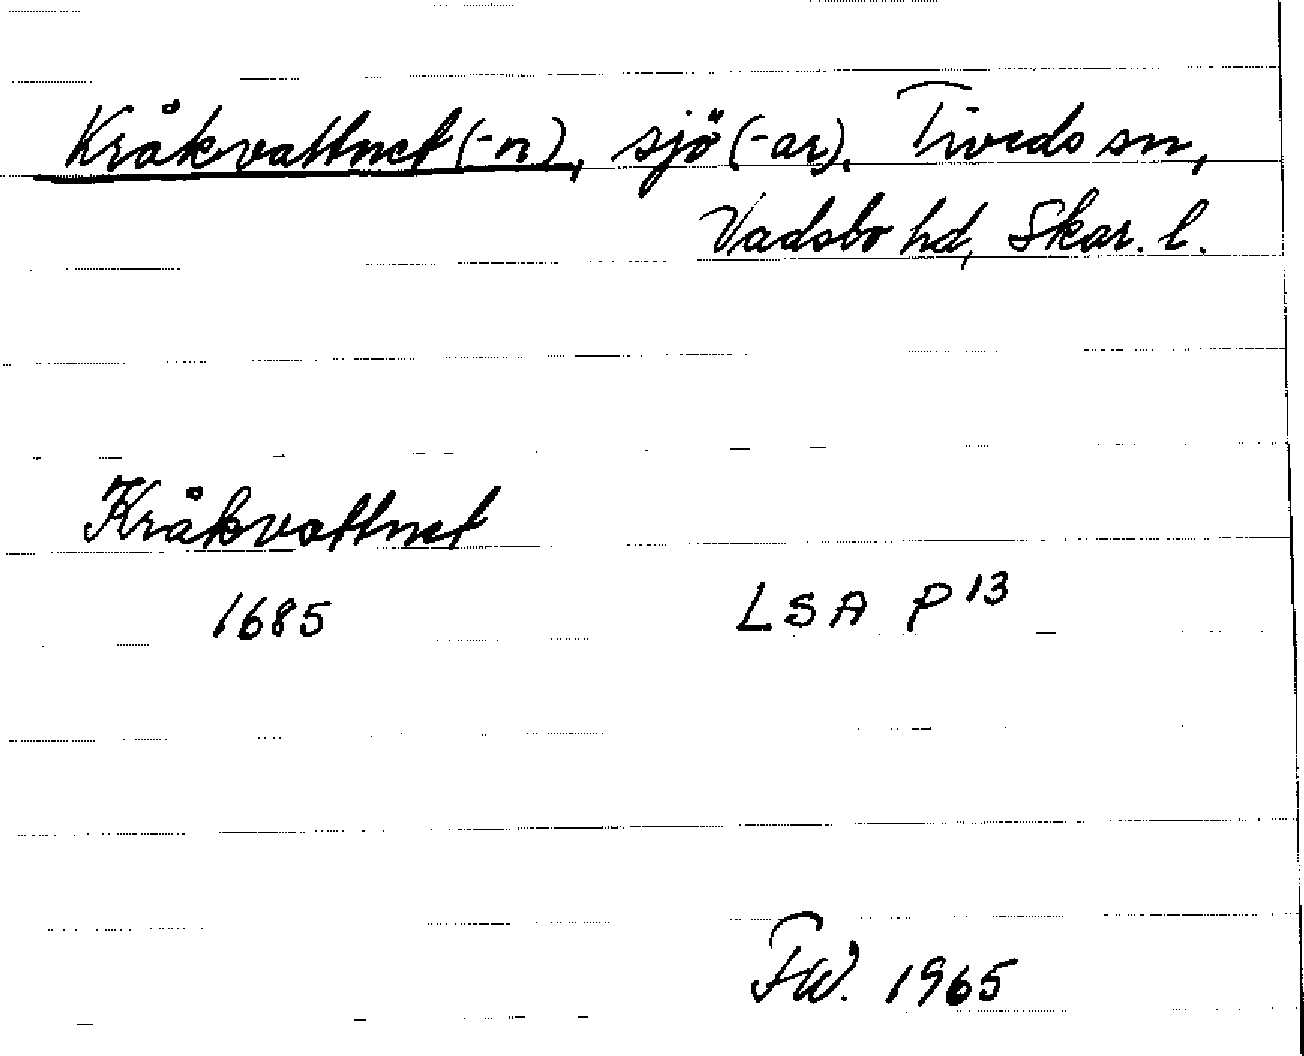 Kråkvattnet (-n), sjö (-ar). Tiveds sn,
Vadsbo hd, Skar. l.
Kråkvattnet
1685 LSA P 13
FW. 1965